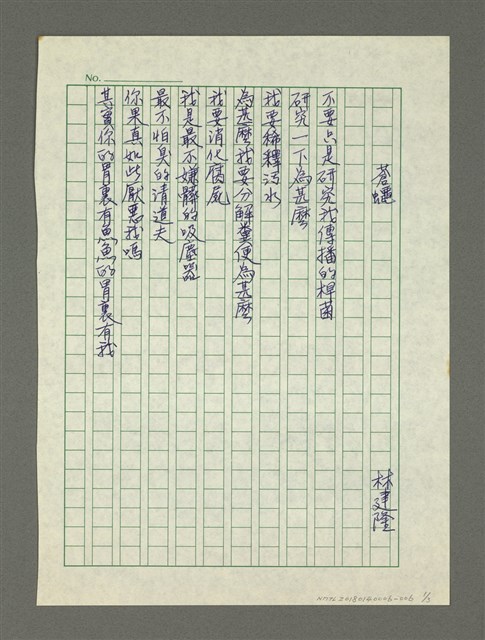 No.
蒼蠅
林建隆
不要只是研究我傳播的桿菌
研究一下為甚麼
我要稀釋污水
為甚麼我要分解糞便為甚麼
我要消化腐屍
我是最不嫌髒的吸塵器
最不怕臭的清道夫
你果真如此厭惡我嗎
其實你的胃裏有魚魚的胃裏有我
NMTL20180140006-006 1/3